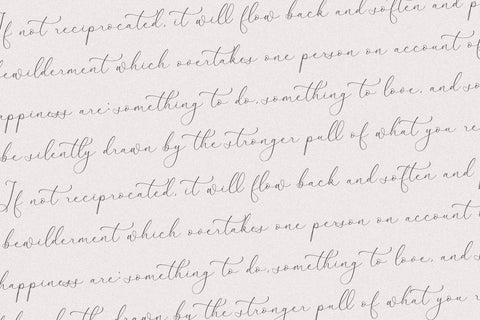 If not reciprocated, it will flow back and soften and p
bewilderment which overtakes one person on account of
appiness are: something to do, something to love, and so
be silently drawn by the stronger pull of what you re
If not reciprocated, it will flow back and soften and p
bewilderment which overtakes one person on account
happiness are: something to do, something to love, and s
drawn by the stronger pull of what you re